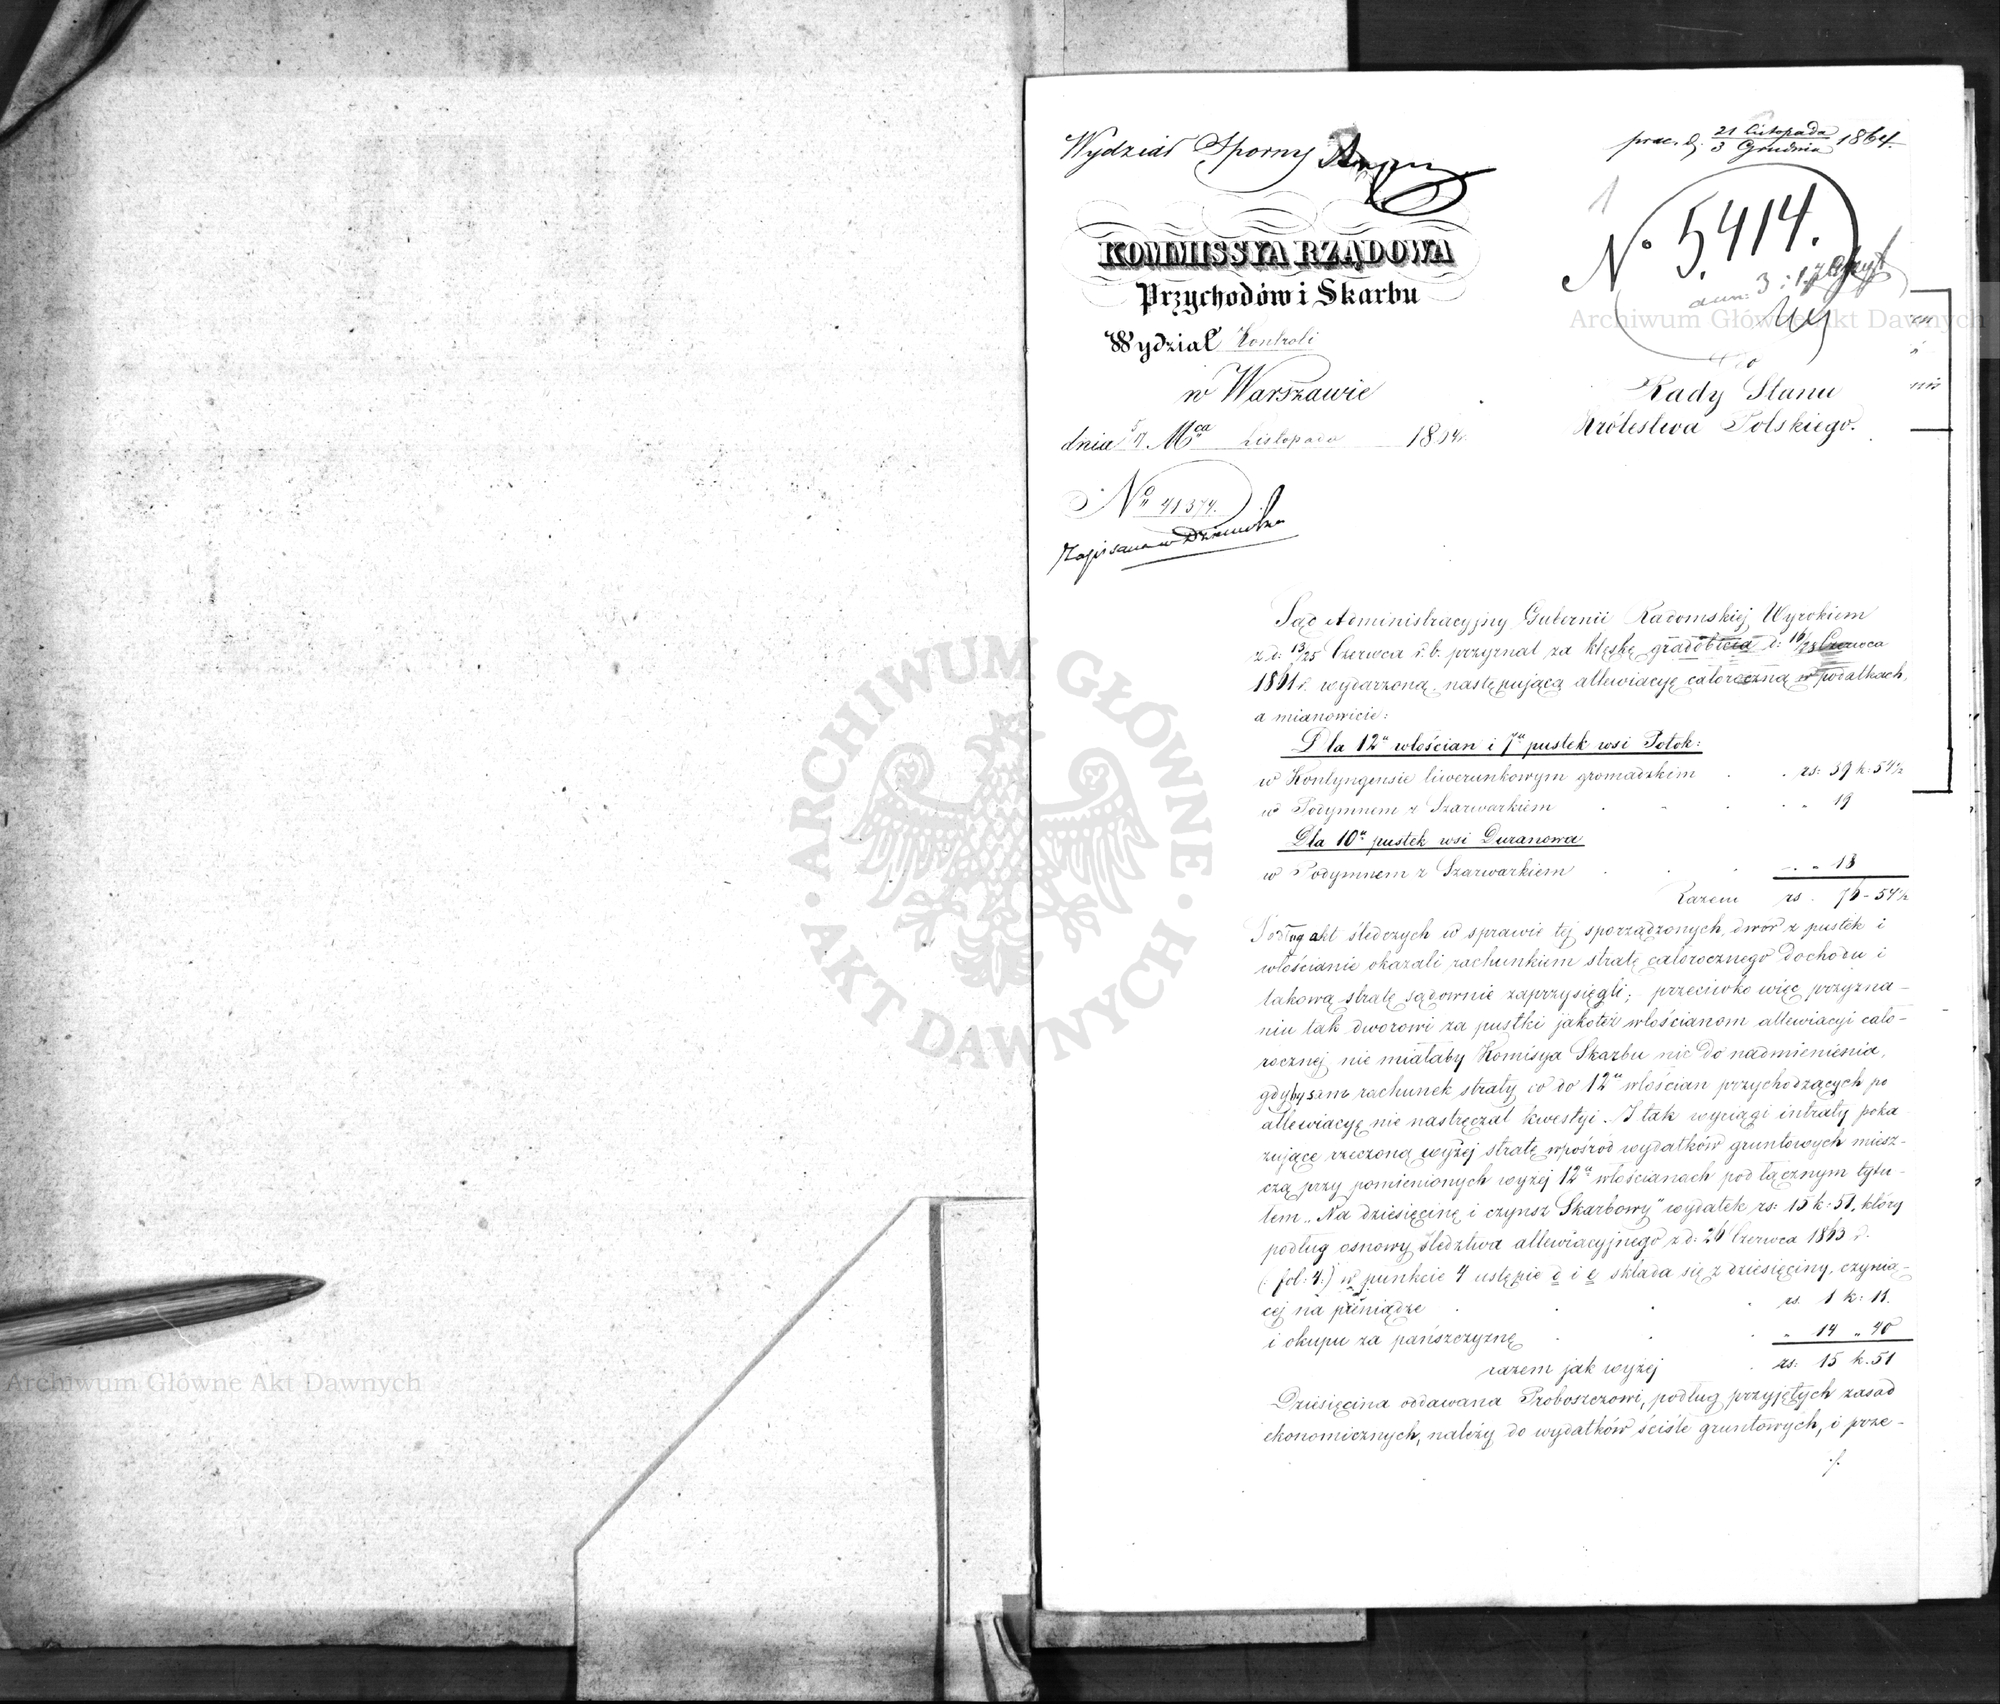 Wydział Sporny
prae. d. 21 Listopada / 3 Grudnia 1864.
1
KOMMISSYA RZĄDOWA
Przychodów i Skarbu
Wydział Kontroli
w Warszawie
dnia 5/17 Mca Listopada 1864 r.
No 41374.
Zapisana w Dzienniku
No 5,414.
Do
Rady Stanu
Królestwa Polskiego.
Sąd Administracyjny Gubernii Radomskiej Wyrokiem
z d: 13/25 Czerwca r. b. przyznał za klęskę gradobicia d: 16/28 Czerwca
1861 r. wydarzoną, następującą allewiacyę całoroczną w podatkach,
a mianowicie:
Dla 12u włościan i 7u pustek wsi Potok:
w Kontyngensie liwerunkowym gromadzkim . . rs: 39 k: 54½
w Podymnem z Szarwarkiem . . . . „ 19
Dla 10u pustek wsi Duranowa
w Podymnem z Szarwarkiem . . . „ 18
Razem rs. 76 - 54½
Podług akt śledczych w sprawie tej sporządzonych, dwór z pustek i
włościanie okazali rachunkiem stratę całorocznego dochodu i
takową stratę sądownie zaprzysięgli; przeciwko więc przyzna-
niu tak dworowi za pustki jakoteż włościanom allewiacyi cało-
rocznej nie miałaby Komisya Skarbu nic do nadmienienia,
gdyby sam rachunek straty co do 12u włościan przychodzących po
allewiacyę nie nastręczał kwestyi. I tak wyciągi intraty poka-
zujące rzeczoną wyżej stratę wpośród wydatków gruntowych miesz-
czą przy pomienionych wyżej 12u włościanach pod łącznym tytu-
łem „Na dziesięcinę i czynsz Skarbowy" wydatek rs: 15 k: 51, który
podług osnowy śledztwa allewiacyjnego z d: 26 Czerwca 1863 r.
(: fol: 4:) w punkcie 4 ustępie d i e składa się z dziesięciny, czynią-
cej na pieniądze . . . . rs. 1 k: 11.
i okupu za pańszczyznę . . . „ 14 „ 40
razem jak wyżej . rs: 15 k. 51
Dziesięcina oddawana Proboszczowi, podług przyjętych zasad
ekonomicznych, należy do wydatków ściśle gruntowych, i prze-
./.
Archiwum Główne Akt Dawnych
Archiwum Główne Akt Dawnych
ARCHIWUM GŁÓWNE · AKT DAWNYCH ·